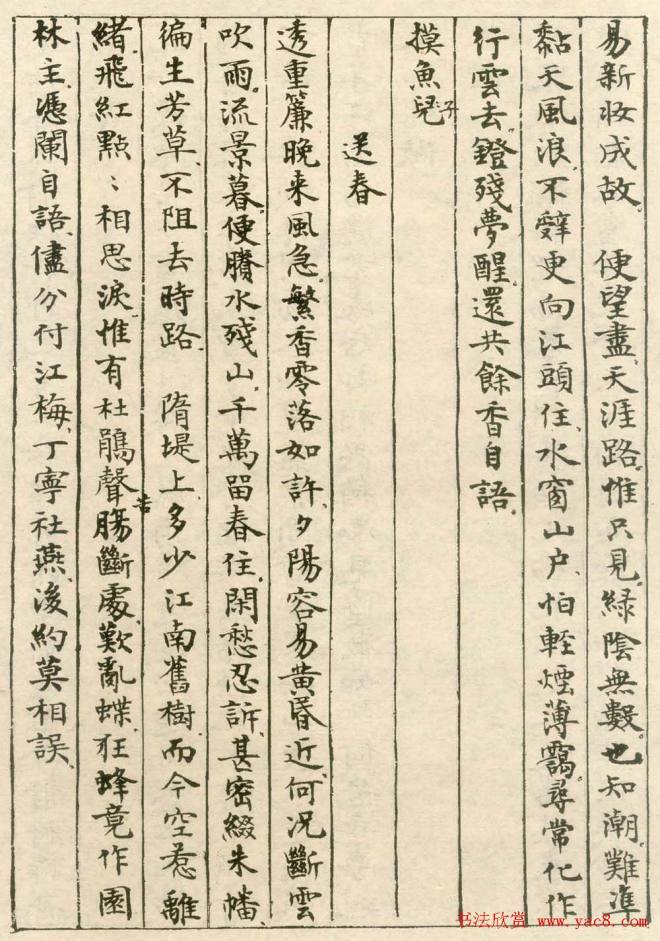 易新妝成故　便望盡天涯路惟只見綠陰無數也知潮難准
黏天風浪不辭更向江頭住水窗山户怕輕煙薄靄尋常化作
行雲去鐙殘夢醒還共餘香自語
摸魚兒子
送春
透重簾晚来風急繁香零落如許夕陽容易黄昏近何况斷雲
吹雨流景暮便賸水殘山千萬留春住閑愁忍訴甚密綴朱幡
徧生芳草不阻去時路　隋堤上多少江南舊樹而今空惹離
緒飛紅點〻相思淚惟有杜鵑聲苦腸斷處歎亂蝶狂蜂竟作園
林主憑闌自語儘分付江梅丁寧社燕後約莫相誤
书法欣赏 www.yac8.com